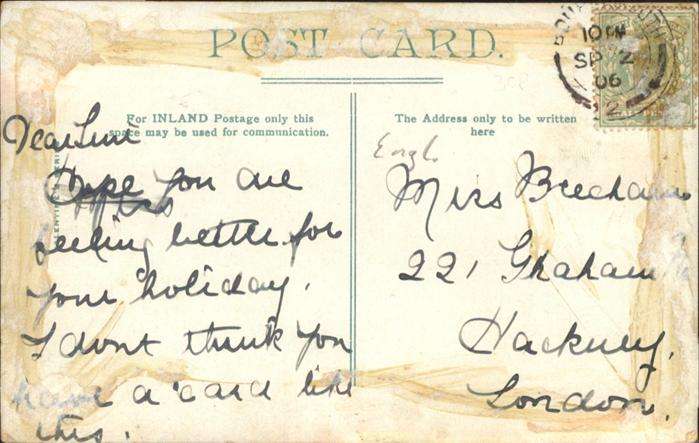 POST CARD.
For INLAND Postage only this
space may be used for communication.
The Address only to be written
here
10 PM
SP 2
06
Dear
Hope you are
feeling better for
your holiday.
I dont think you
have a card like
this.
Miss Beecham
221 Graham
Hackney,
London.